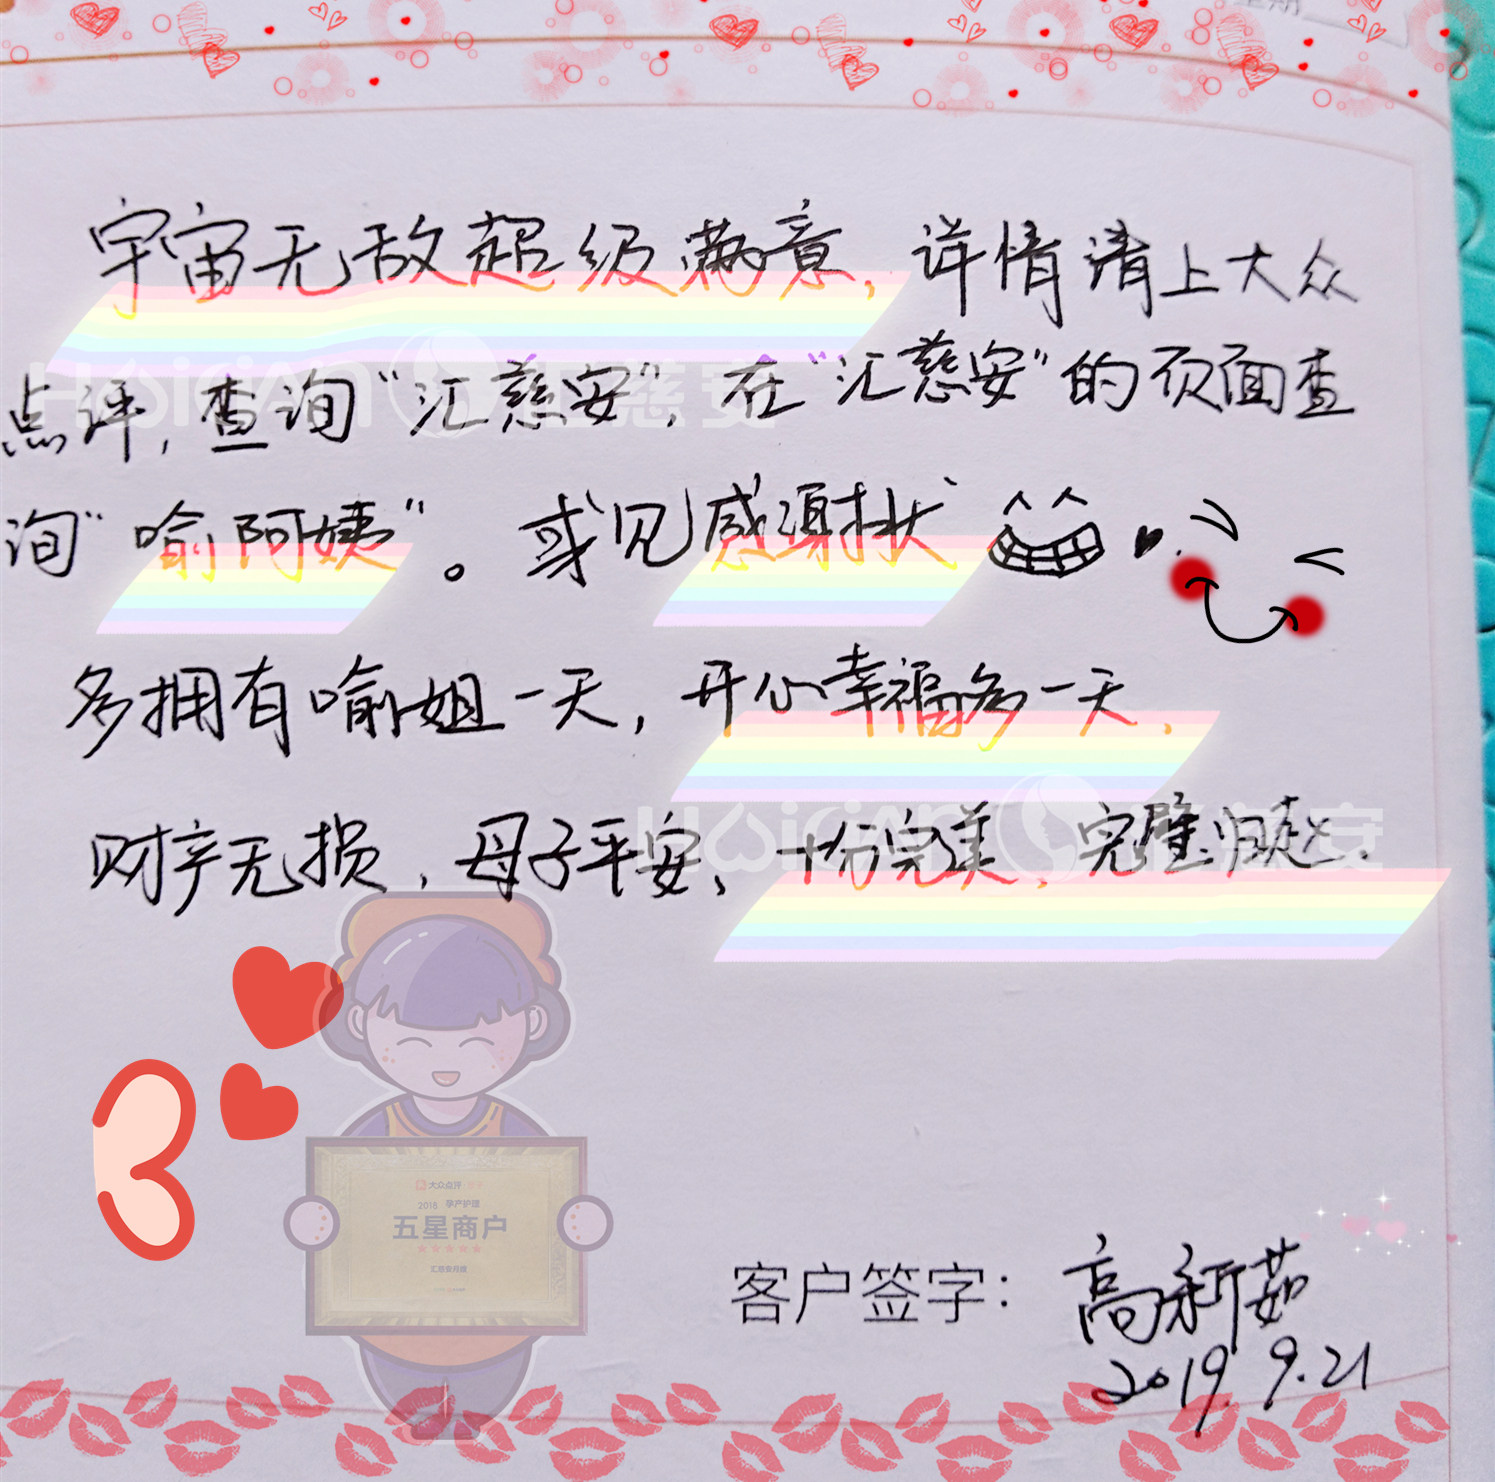 宇宙无敌超级满意,详情请上大众
点评,查询“汇慈安”,在“汇慈安”的页面查
询“喻阿姨”。或见感谢状
多拥有喻姐一天,开心幸福多一天,
财产无损,母子平安,十分完美,完璧归赵.
HoiciAN 汇慈安
HoiciAN 汇慈安
大众点评
2018 孕产护理
五星商户
汇慈安月嫂
客户签字: 高新茹
2019.9.21